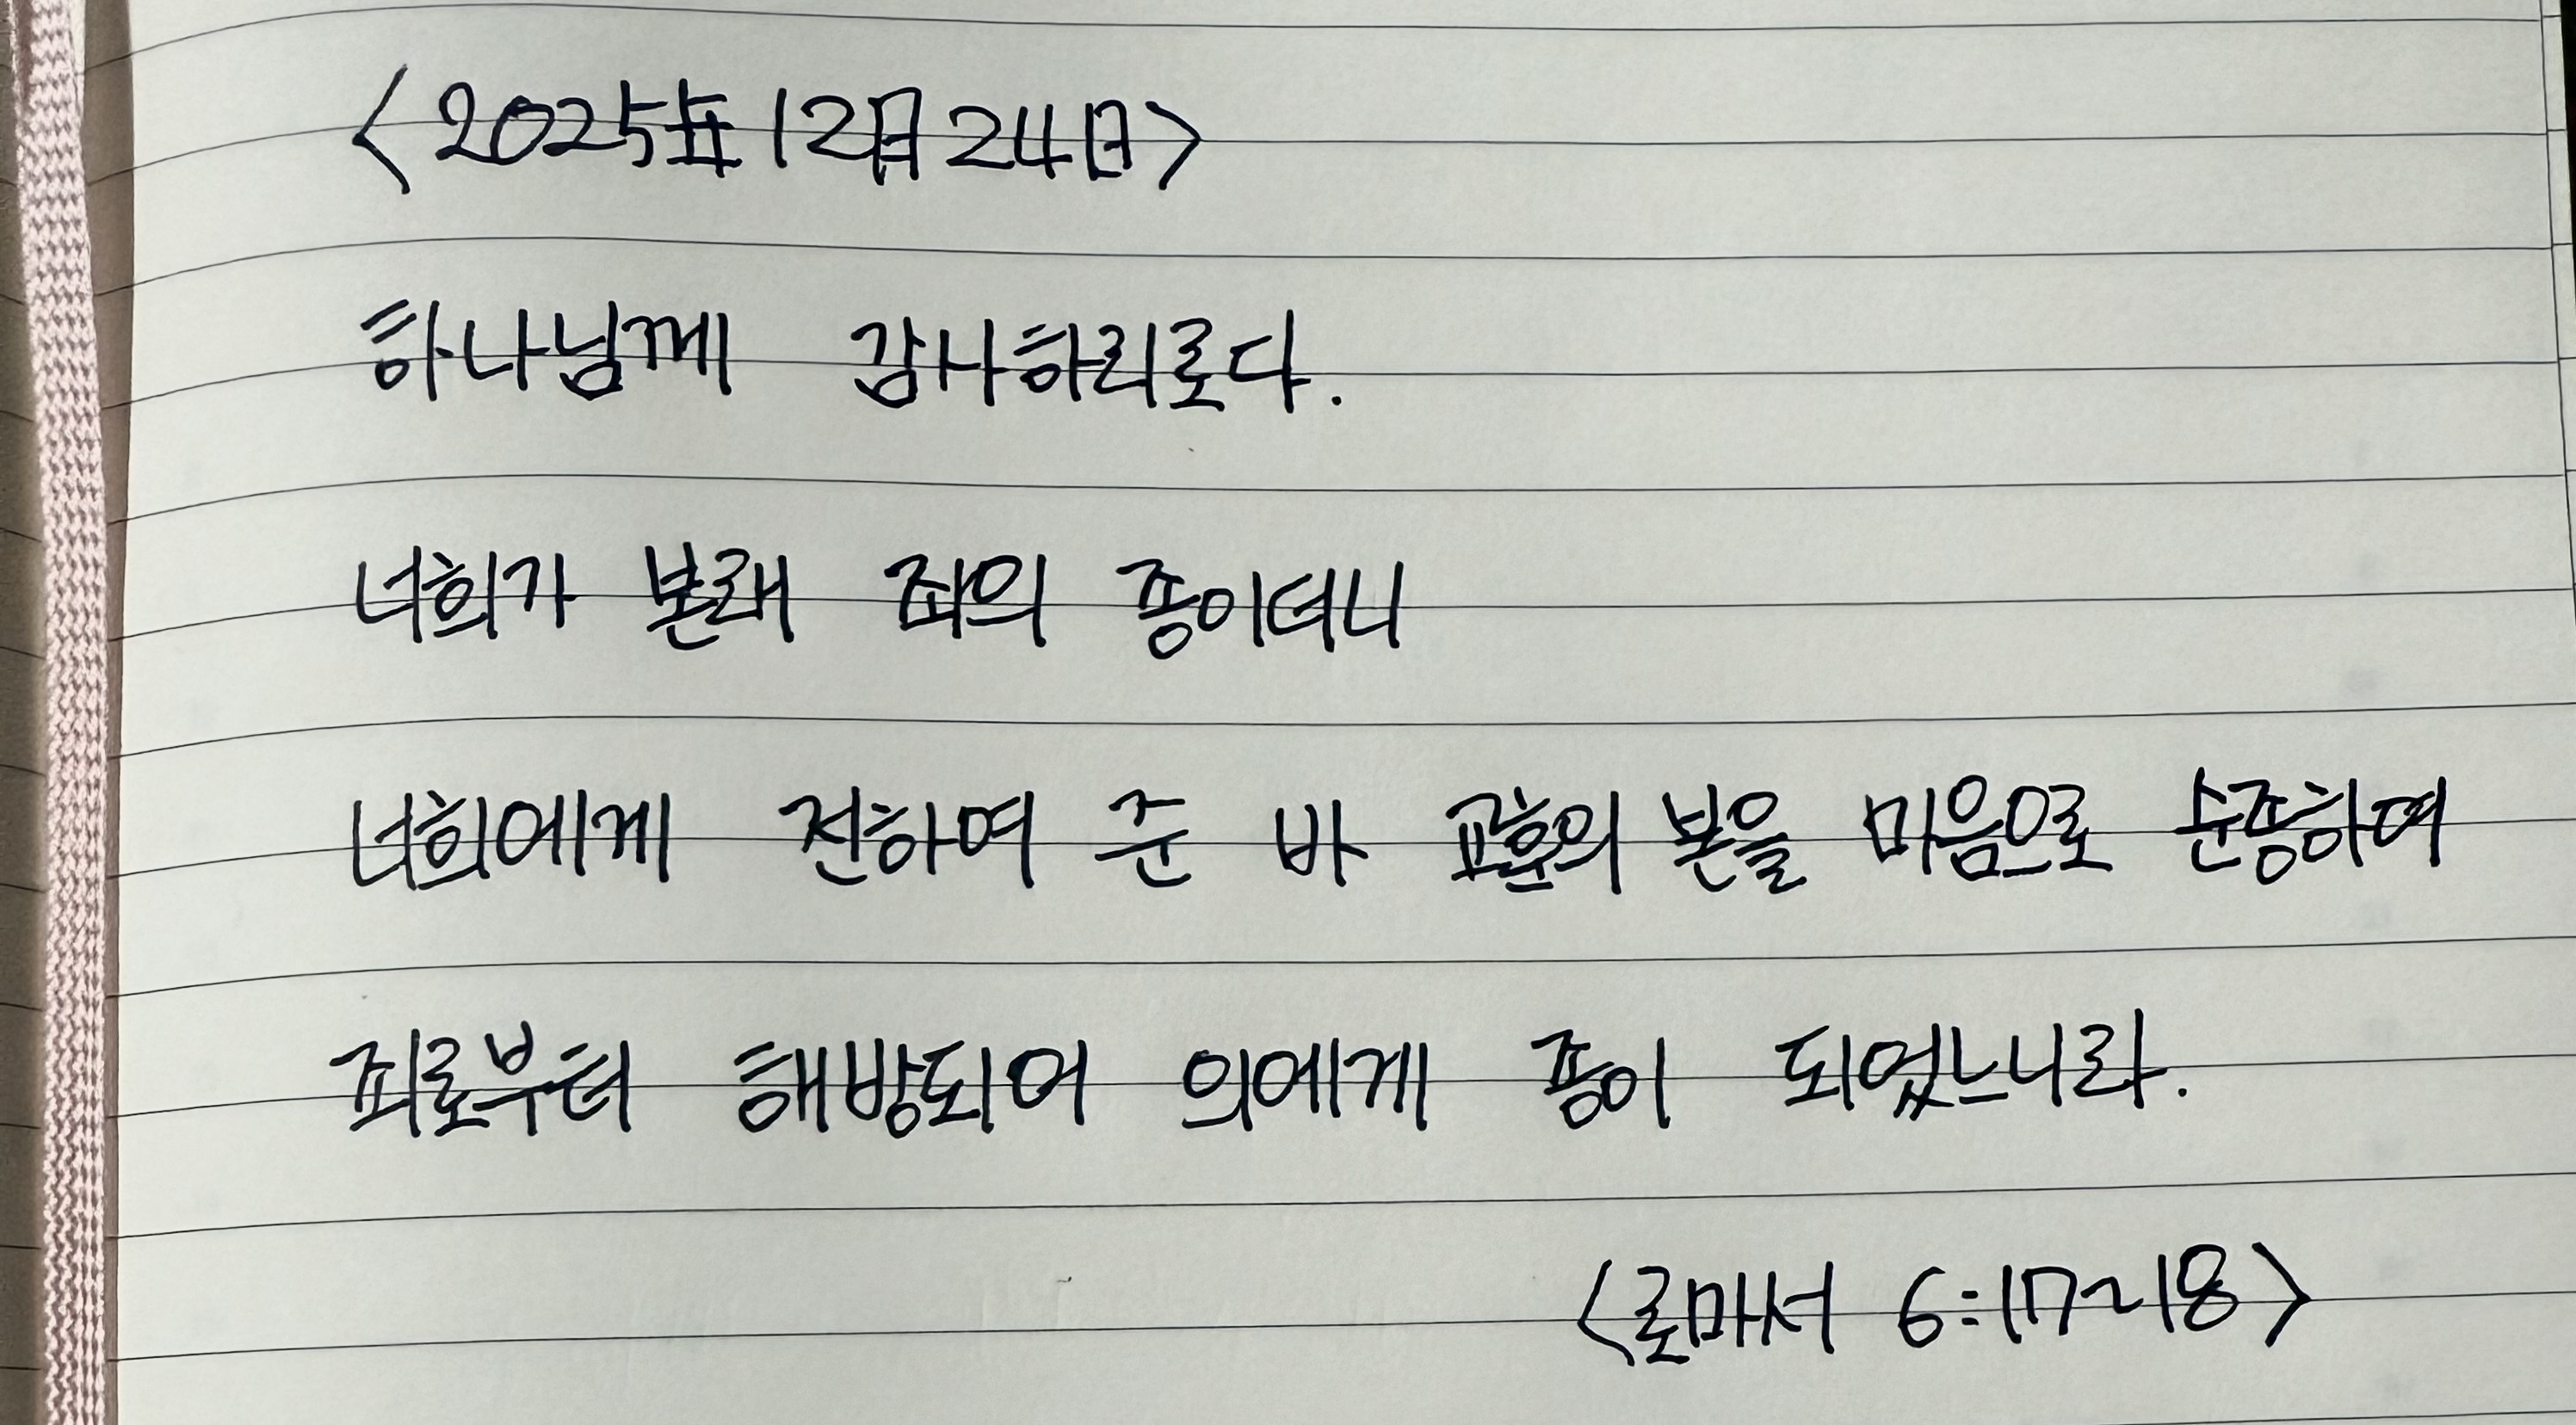 <2025年 12月 24日>
하나님께 감사하리로다.
너희가 본래 죄의 종이더니
너희에게 전하여 준 바 교훈의 본을 마음으로 순종하여
죄로부터 해방되어 의에게 종이 되었느니라.
<로마서 6:17~18>